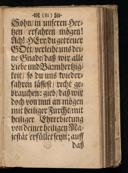 Sohn / in unseren Her-
tzen erfahren mögen!
Ach! HErr du getreuer
GOtt / verleihe uns dei-
ne Gnade / daß wir alle
Liebe und Barmhertzig-
keit / so du uns wieder-
fahren lässest / recht ge-
brauchen: gieb / daß wir
doch von nun an mögen
mit heiliger Furcht / mit
heiliger Ehrerbietung
vor deiner heiligen Ma-
jestät erfüllet seyn; auff
daß